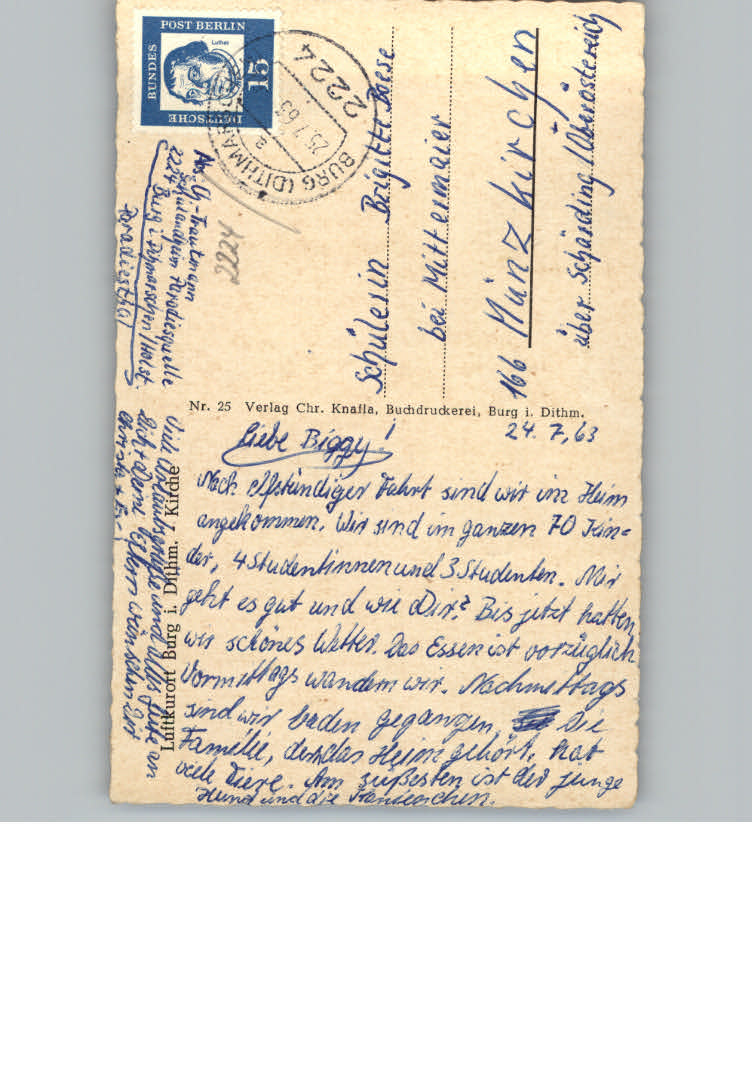 DEUTSCHE
BUNDES
POST BERLIN
Luther
15
2224
BURG (DITHMARSCHEN)
25.7.63
a
Abs. Trautmann
Schullandheim Paradiesquelle
2224 Burg i. Dithmarschen/Holst.
Paradiesthal
2224
Schülerin Brigitte Boese
bei Mittermaier
166 Münzkirchen
über Schärding/Oberösterreich
Nr. 25 Verlag Chr. Knafla, Buchdruckerei, Burg i. Dithm.
24.7.63
Liebe Biggy!
Nach elfstündiger Fahrt sind wir im Heim
angekommen. Wir sind im ganzen 70 Kin=
der, 4 Studentinnen und 3 Studenten. Mir
geht es gut und wie Dir? Bis jetzt hatten
wir schönes Wetter. Das Essen ist vorzüglich
Vormittags wandern wir. Nachmittags
sind wir baden gegangen. Die
Familie, der das Heim gehört, hat
viele Tiere. Am süßesten ist der junge
Hund und die
Luftkurort Burg i. Dithm. / Kirche
Viele Urlaubsgrüße und alles Gute an
Dich + Deine Eltern wünschen Dir